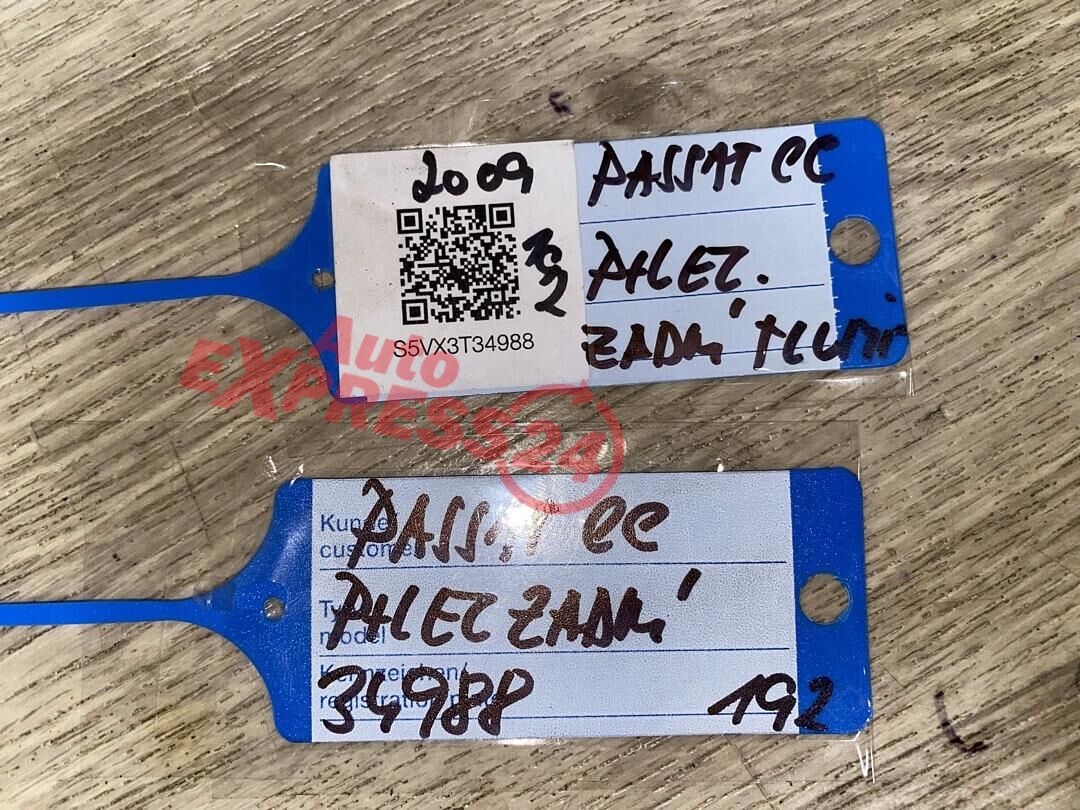 2009
192
S5VX3T34988
PASSAT CC
PHLEZ.
ZADNÍ TLUMI
Auto
EXPRESS24
Kunde
customer
PASSAT CC
Typ
model
PHLEZ ZADNÍ
Kennzeichen/
registration
34988 192